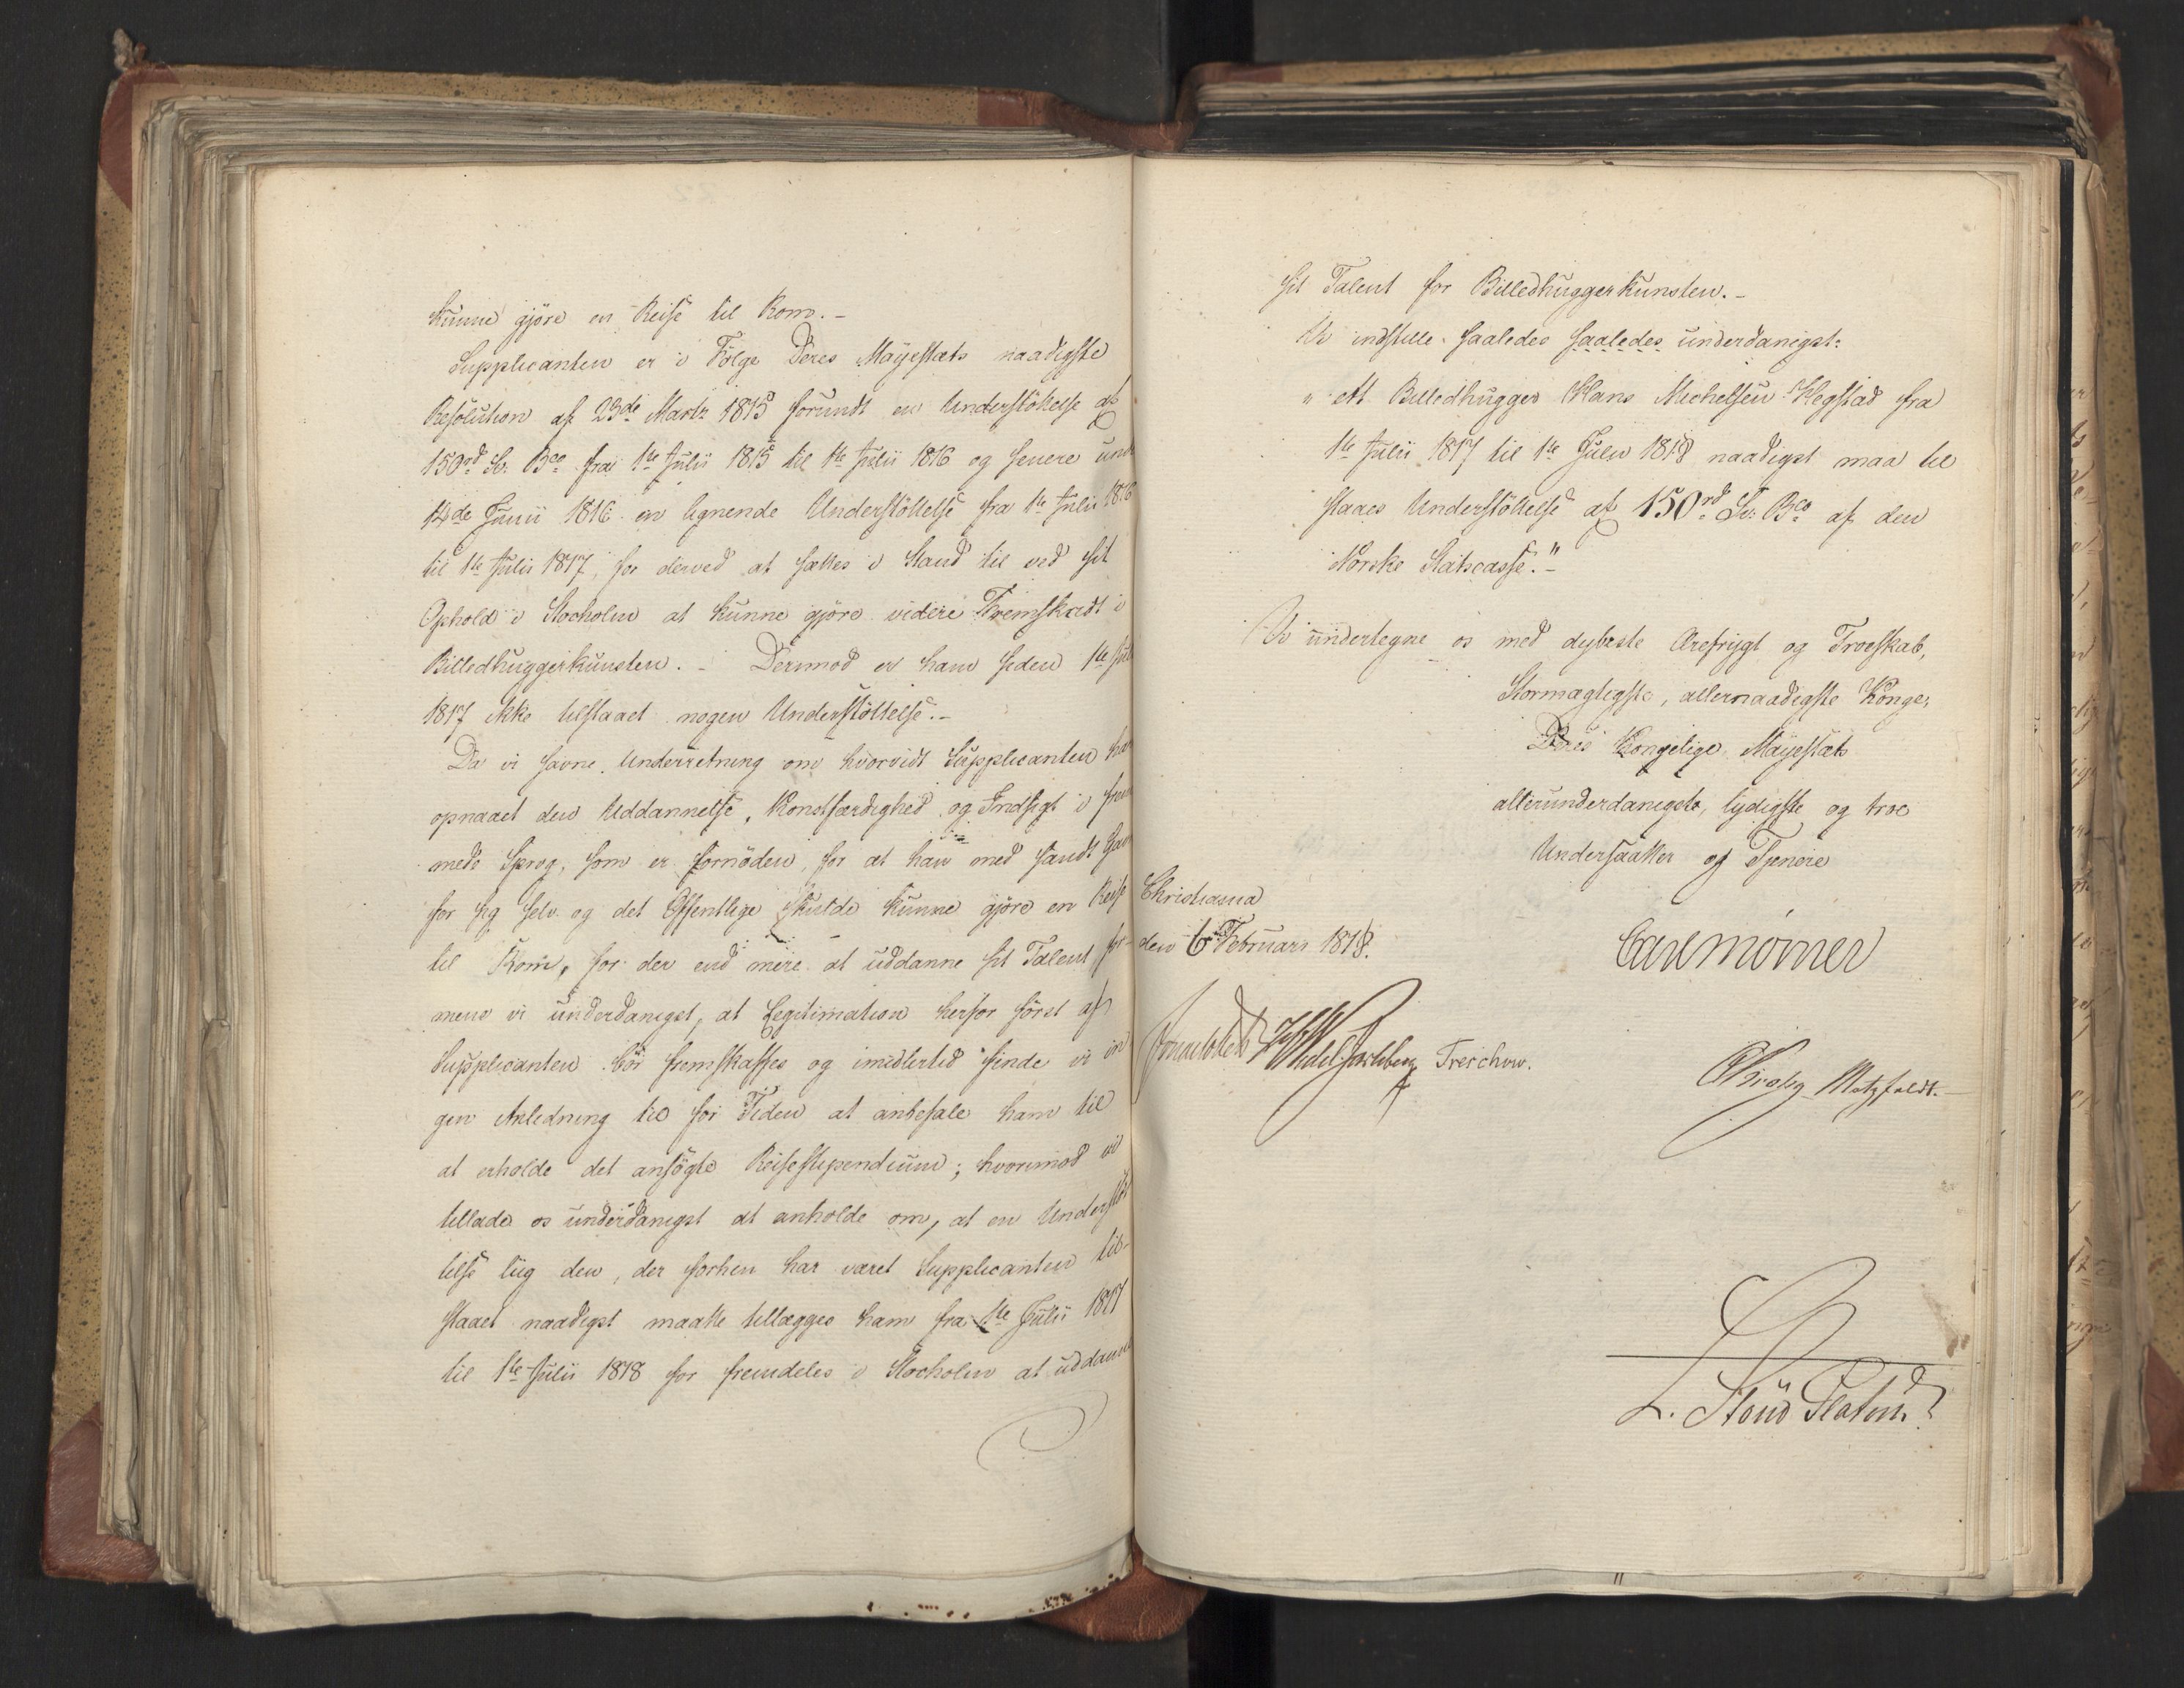 kunne gjöre en Reise til Rom. -
Supplicanten er i Fölge Deres Mayestæts naadigste
Resolution af 23de Marts 1815 forundt en Understöttelse af
150rd Sv. Bco fra 1ste Julii 1815 til 1ste Julii 1816 og senere und
14de Junii 1816 en lignende Understöttelse fra 1ste Julii 1816
til 1ste Julii 1817, for derved at sættes i Stand til ved sit
Ophold i Stocholm at kunne gjöre videre Fremskridt i
Billedhuggerkunsten. - Derimod er ham siden 1ste Juli
1817 ikke tilstaaet nogen Understöttelse. -
Da vi savne Underretning om hvorvidt Supplicanten har
opnaaet den Uddannelse, Konstfærdighed og Indsigt i frem
mede Sprog, som er fornöden, for at han med sandt Gavn
for sig selv og det Offentlige skulde kunne gjöre en Reise
til Rom, for der end mere at uddanne sit Talent, for-
mene vi underdanigst, at Legitimation herfor först af
Supplicanten bör fremskaffes og imidlertid finde vi in
gen Anledning til for Tiden at anbefale ham til
at erholde det ansögte Reisestipendium; hvorimod vi
tillade os underdanigst at anholde om, at en Understöt
telse liig den, der forhen har været Supplicanten til-
staaet naadigst maatte tillægges ham fra 1ste Julii 1817
til 1ste Julii 1818 for fremdeles i Stocholm at uddanne
sit Talent for Billedhuggerkunsten. -
Vi indstille saaledes saaledes underdanigst:
" At Billedhugger Hans Michelsen Hegstad fra
1ste Julii 1817 til 1ste Julii 1818 naadigst maa til
staaes Understöttelse af 150rd Sv. Bco af den
Norske Statscasse." -
Vi undertegne os med dybeste Ærefrygt og Troeskab,
Stormægtigste, allernaadigste Konge,
Deres Kongelige Mayestæts
allerunderdanigste, lydigste og troe
Undersaatter og Tjenere
Christiania
den 6te Februari 1818.
Carl Mörner
Sommerhielm HWedel Jarlsberg Treschow.
CKrohg Motzfeldt. -
L. Stoud Platou